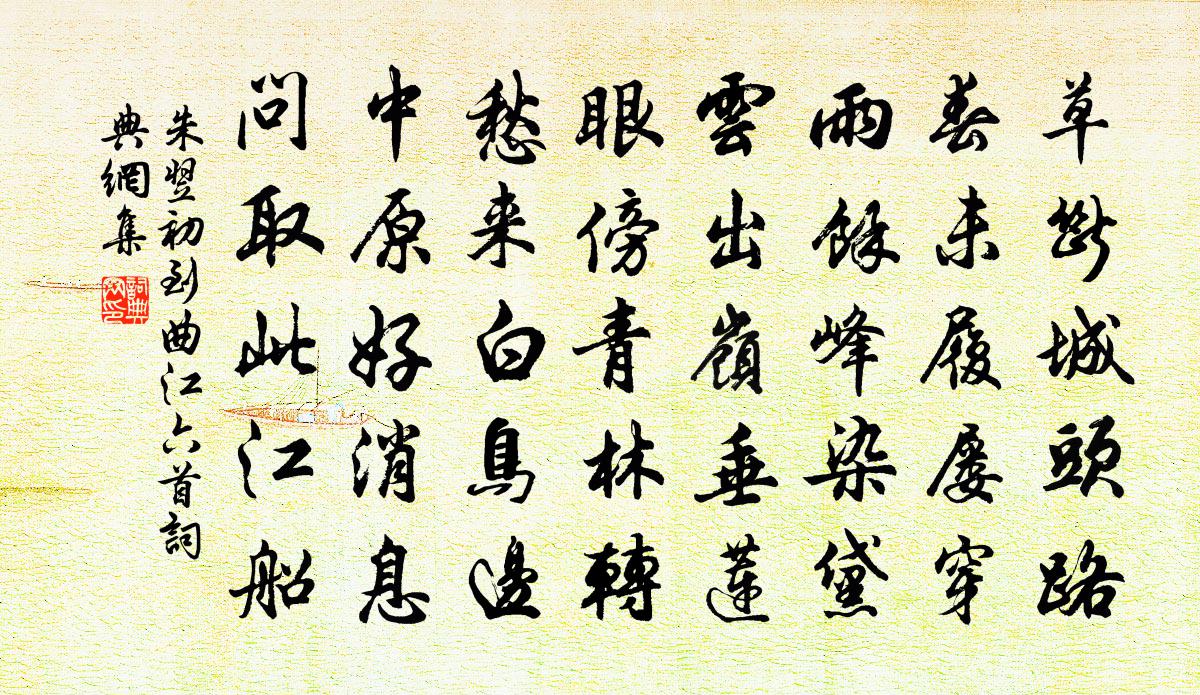 草斷城頭路
春未履屢穿
雨餘峰染黛
雲出嶺垂蓮
眼傍青林轉
愁来白鳥邊
中原好消息
問取此江船
朱翌初到曲江六首詞
典網集
詞典
網印